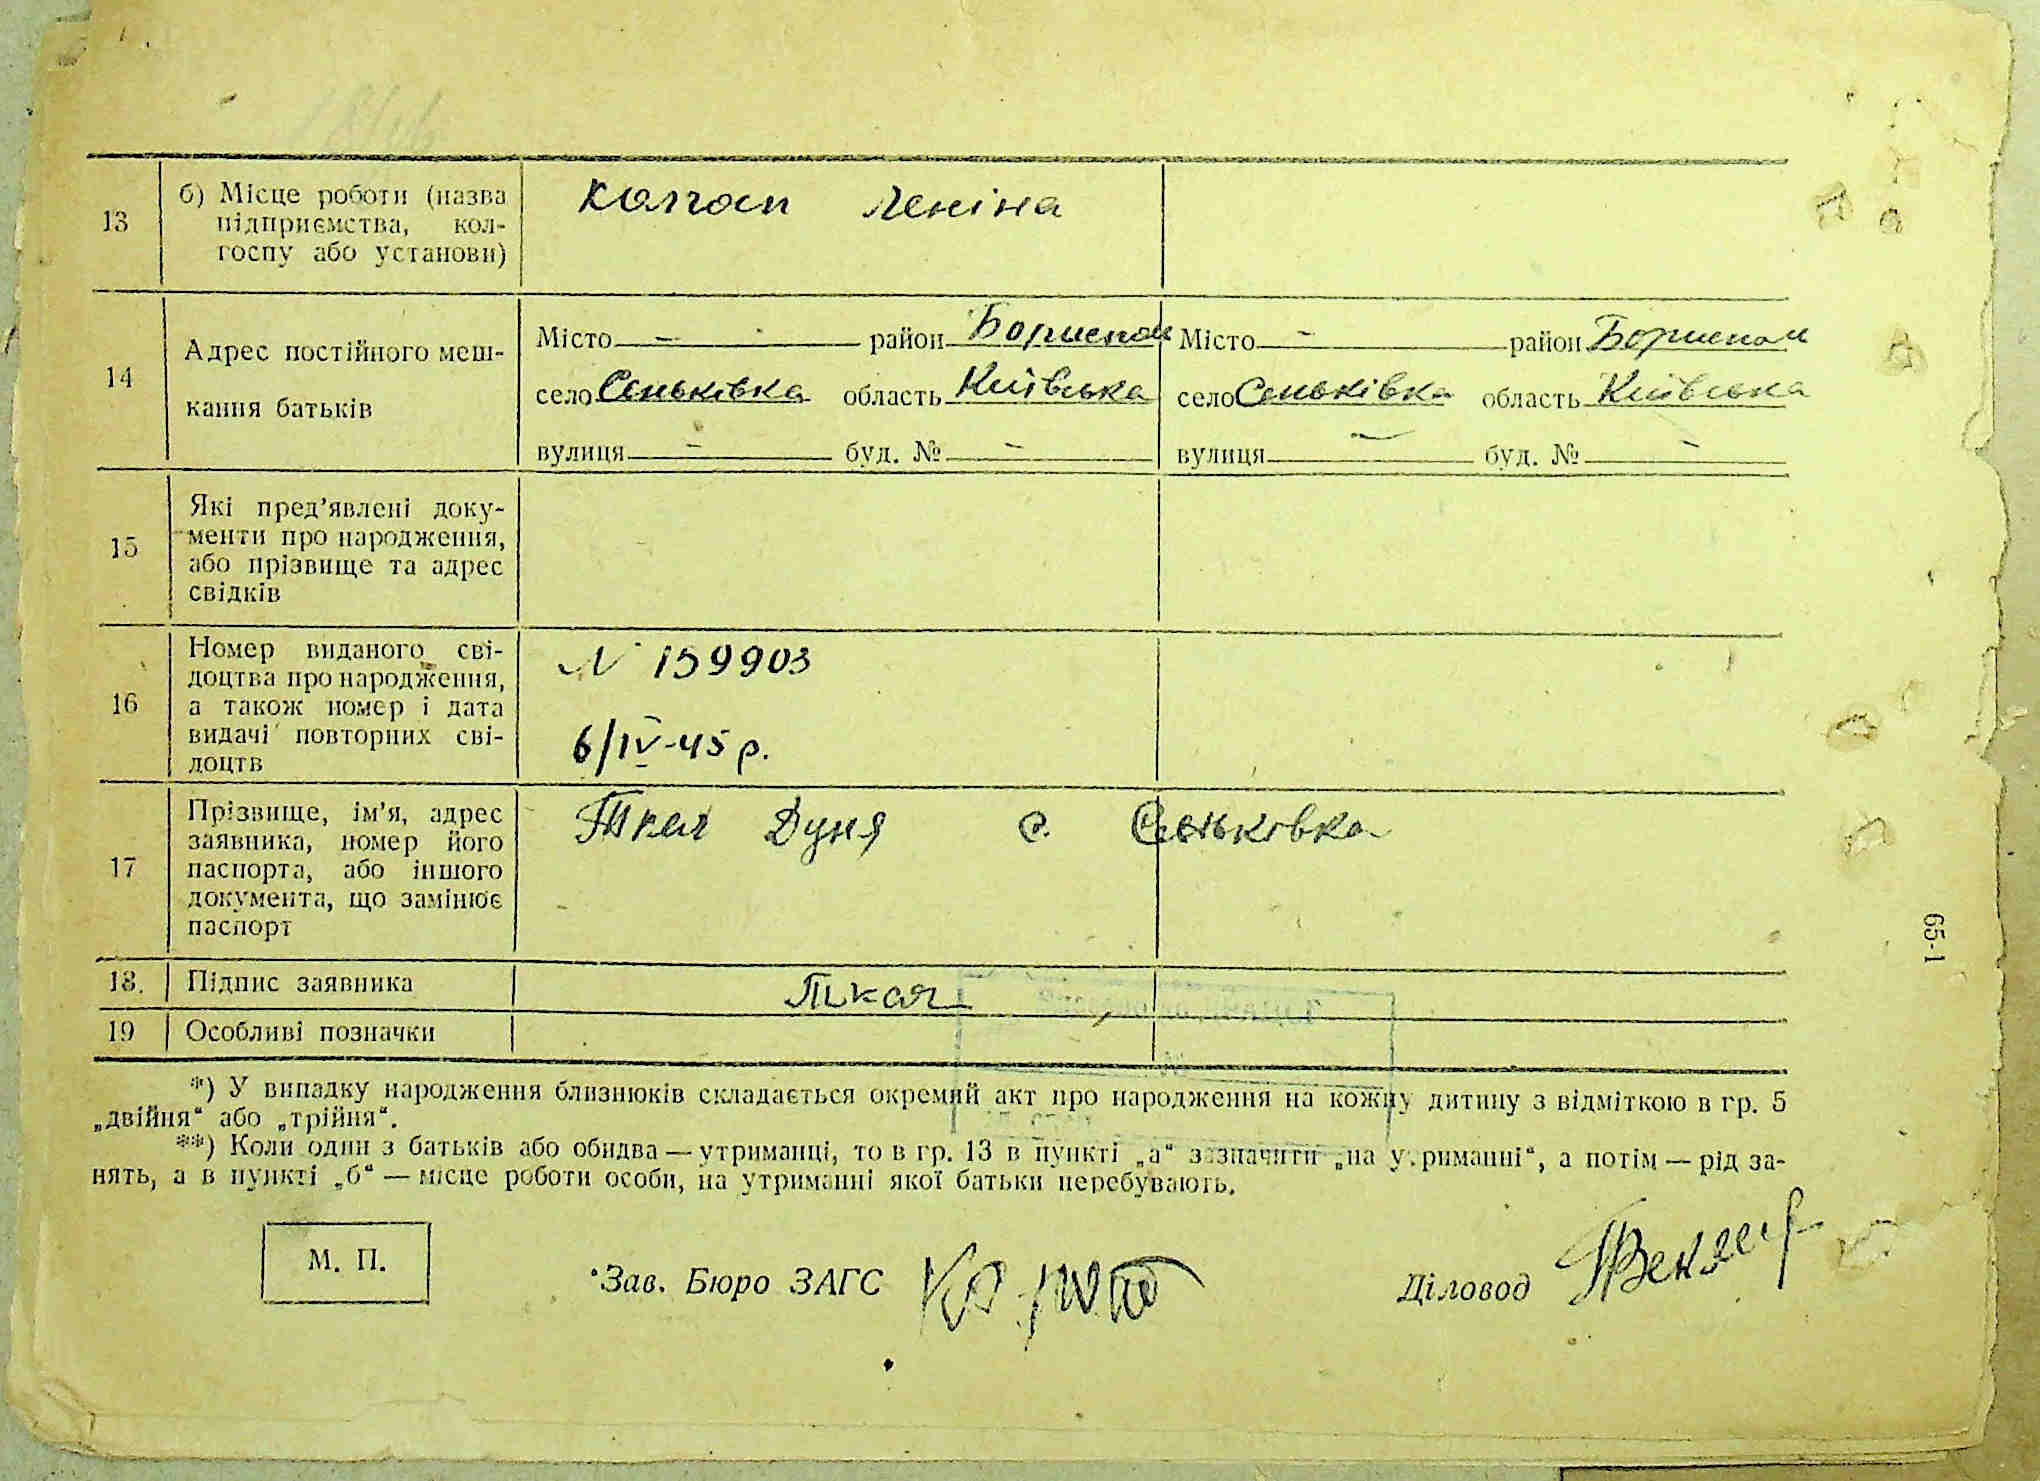 13
б) Місце роботи (назва
підприємства, кол-
госпу або установи)
Колгосп Леніна
14
Адрес постійного меш-
кання батьків
Місто — район Бориспол
село Сеньківка область Київська
вулиця — буд. № —
Місто — район Бориспол
село Сеньківка область Київська
вулиця — буд. № —
15
Які пред’явлені доку-
менти про народження,
або прізвище та адрес
свідків
16
Номер виданого сві-
доцтва про народження,
а також номер і дата
видачі повторних сві-
доцтв
N 159903
6/IV-45 р.
17
Прізвище, ім’я, адрес
заявника, номер його
паспорта, або іншого
документа, що замінює
паспорт
Ткач Дуня с. Сеньківка
18. Підпис заявника
Ткач
19 Особливі позначки
*) У випадку народження близнюків складається окремий акт про народження на кожну дитину з відміткою в гр. 5
„двійня“ або „трійня“.
**) Коли один з батьків або обидва — утриманці, то в гр. 13 в пункті „а“ зазначити „на утриманні“, а потім — рід за-
нять, а в пункті „б“ — місце роботи особи, на утриманні якої батьки перебувають.
М. П.
Зав. Бюро ЗАГС
Діловод
65-1